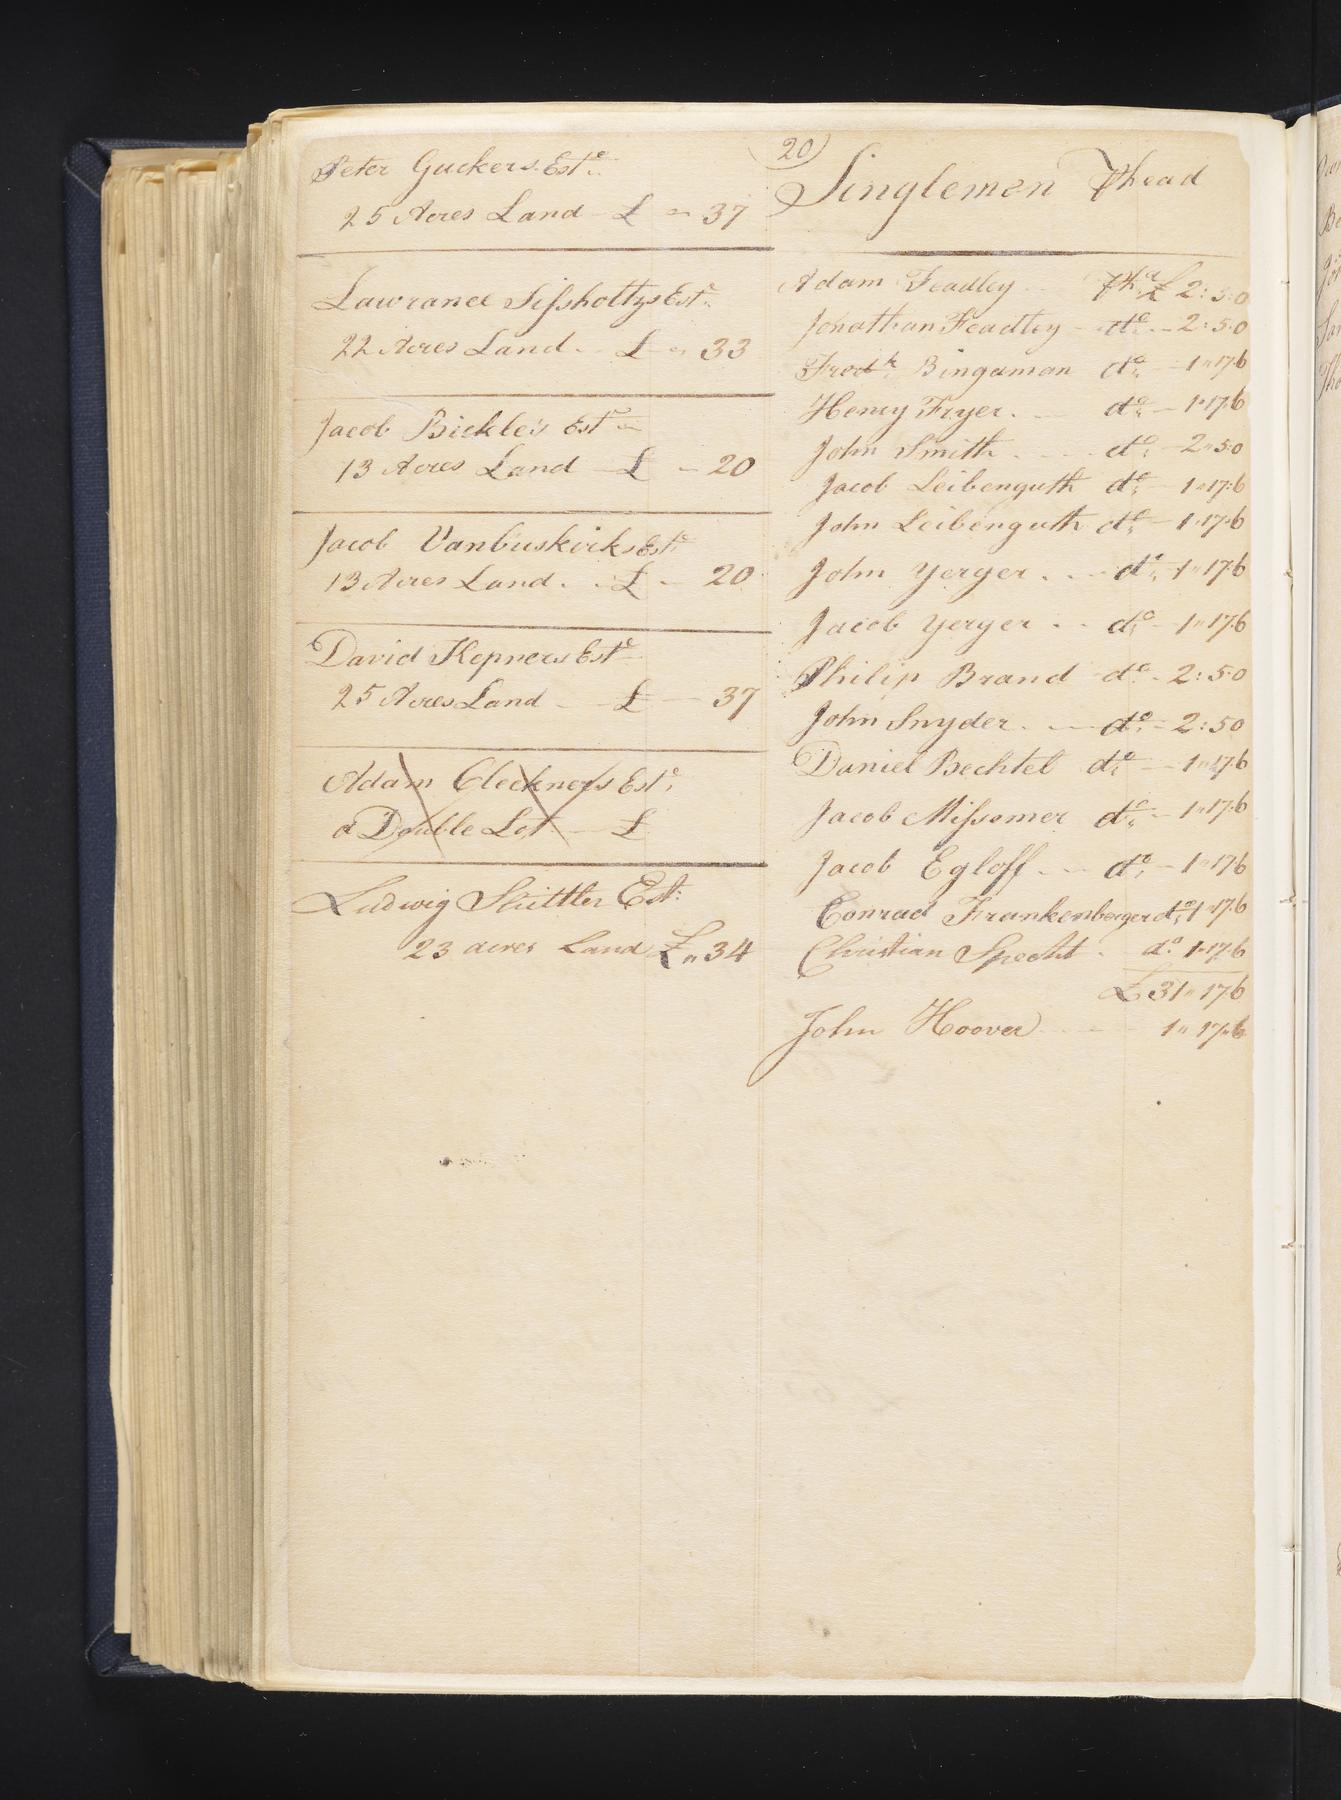 20
Peter Guckers Estᵉ
25 Acres Land £ 37
Lawrance Sifsholtzs Estᵉ
22 Acres Land £ 33
Jacob Bickle's Estᵉ
13 Acres Land £ 20
Jacob Vanbuskirks Estᵉ
13 Acres Land £ 20
David Kepners Estᵉ
25 Acres Land £ 37
Adam Cleckners Estᵉ
a Double Lot £
Ludwig Shittler Est:
23 acres Land £ 34
Singlemen ⅌ head
Adam Feadley ⅌ hᵈ £ 2:5:0
Jonathan Feadley dᵒ 2:5:0
Fredᵏ Bingaman dᵒ 1"17:6
Henry Fryer dᵒ 1"17:6
John Smith dᵒ 2"5:0
Jacob Leibenguth dᵒ 1"17:6
John Leibenguth dᵒ 1"17:6
John Yerger dᵒ 1"17:6
Jacob Yerger dᵒ 1"17:6
Philip Brand dᵒ 2:5:0
John Snyder dᵒ 2:5:0
Daniel Bechtel dᵒ 1"17:6
Jacob Mifsemer dᵒ 1"17:6
Jacob Egloff dᵒ 1"17:6
Conrad Frankenberger dᵒ 1"17:6
Christian Specht dᵒ 1"17:6
£31"17:6
John Hoover 1"17"6